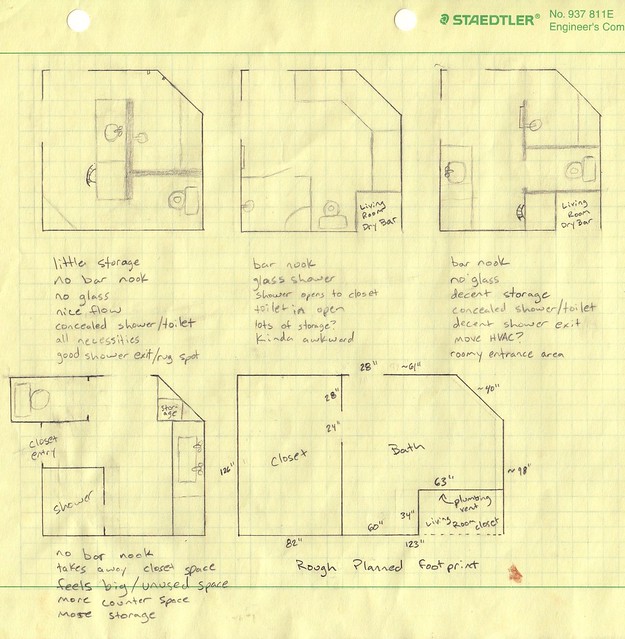 STAEDTLER® No. 937 811E
Engineer's Com
Living
Room
Dry Bar
Living
Room
Dry Bar
little storage
no bar nook
no glass
nice flow
concealed shower/toilet
all necessities
good shower exit/rug spot
bar nook
glass shower
shower opens to closet
toilet in open
lots of storage?
Kinda awkward
bar nook
no glass
decent storage
concealed shower/toilet
decent shower exit
move HVAC?
roomy entrance area
closet
entry
shower
stor-
age
no bar nook
takes away closet space
feels big/unused space
more counter space
more storage
28"
~61"
28"
~40"
24"
126"
Closet
Bath
~98"
63"
plumbing
vent
34"
Living Room closet
82"
60"
123"
Rough Planned Footprint